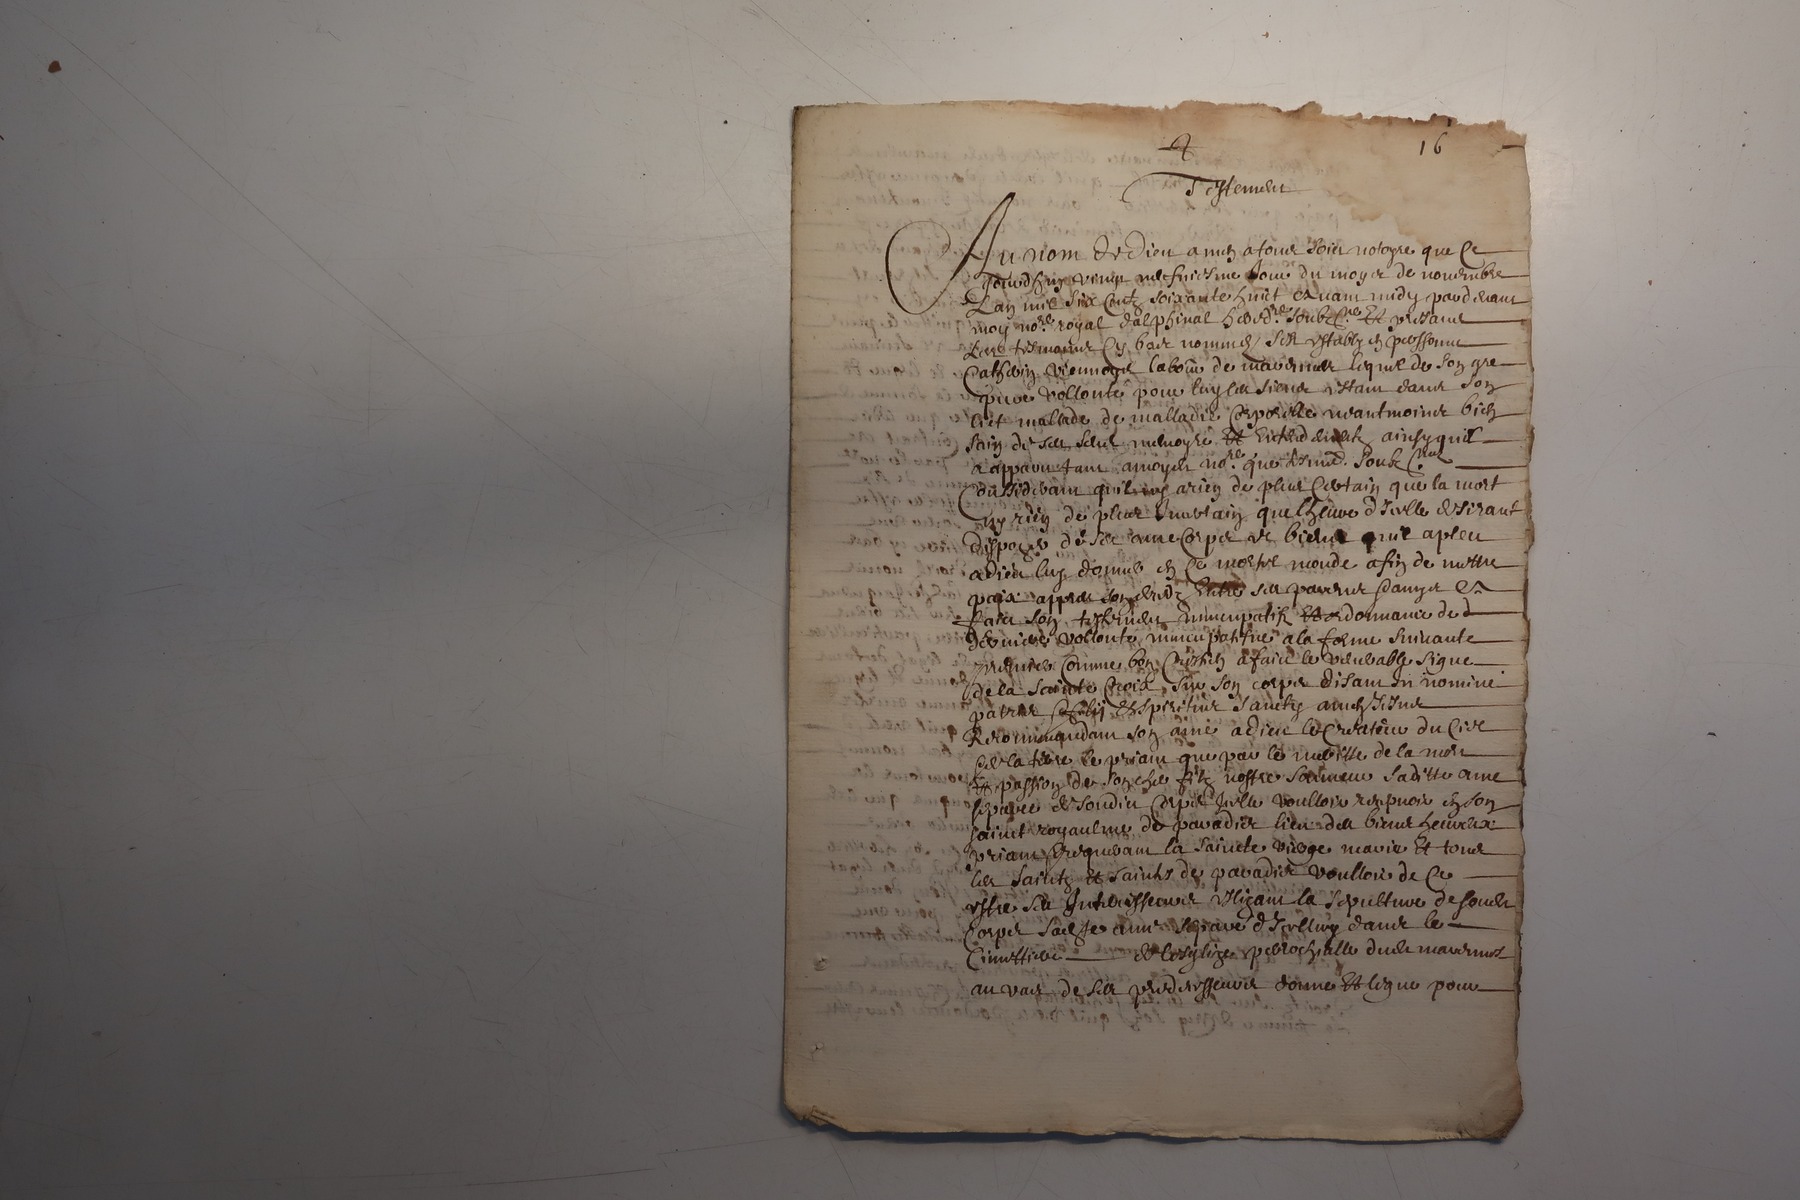 16
Testement
Au nom de Dieu amen a tous soit notoyre que ce
jourdhuy vingt neufviesme jour du moys de novembre
Lan mil six centz soixante huict avant midy par devant
moy no.re royal dalphinal hered.re soubz.ne et presans
les tesmoins cy bas nommes sest estably en personne
vionnoys labour de lequel de son gre
pure vollonte pour luy les siens estant dans son
lict mallade de malladie corporelle neantmoins bien
sain de ses sens memoyre et entendement ainsy quil
a apparu tant a moydit no.re que tesmo. soubz
Considerant quil ny a rien de plus certain que la mort
ny rien de plus incertain que lheure dicelle desirant
dispozer de ses ame corps et biens quil a pleu
a dieu luy donner en ce mortel monde afin de mettre
paix appres son deces entre ses parens et amys a
faict son testement nuncupatif et ordonnance de
derniere vollonte nuncupatifve a la forme suivante
premier comme bon crestien a faict le venerable signe
de la sainte croix sur son corps disant In nomine
patris et filii et spiritus sancty amen
Recommandant son ame a dieu le Createur du Ciel
et de la terre le priant que par le meritte de la mort
et passion de son cher filz nostre sauveur saditte ame
separee de sondit corps icelle voulloir recepvoir en son
sainct royaulme de paradis lieu des biens heureux
priant et requerant la saincte vierge marie et tous
les saintz et saintes de paradis voulloir de ce
estre ses intercesseurs eslizant la sepulture de sondit
corps sadite ame separe dicelluy dans le
Cimettiere de lesglize parrochialle dudit
au vas de ses predecesseurs donne et legue pour